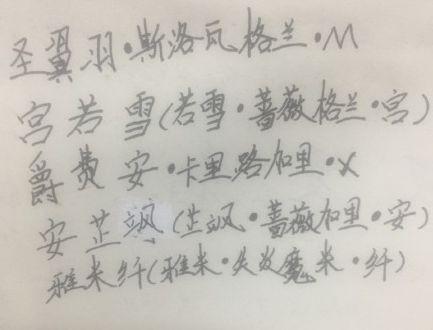 圣翼羽·斯洛瓦格兰·M
宫若雪(若雪·蔷薇格兰·宫)
爵费安·卡里路加里·X
安芷飒(芷飒·蔷薇加里·安)
雅米纤(雅米·失发魔米·纤)